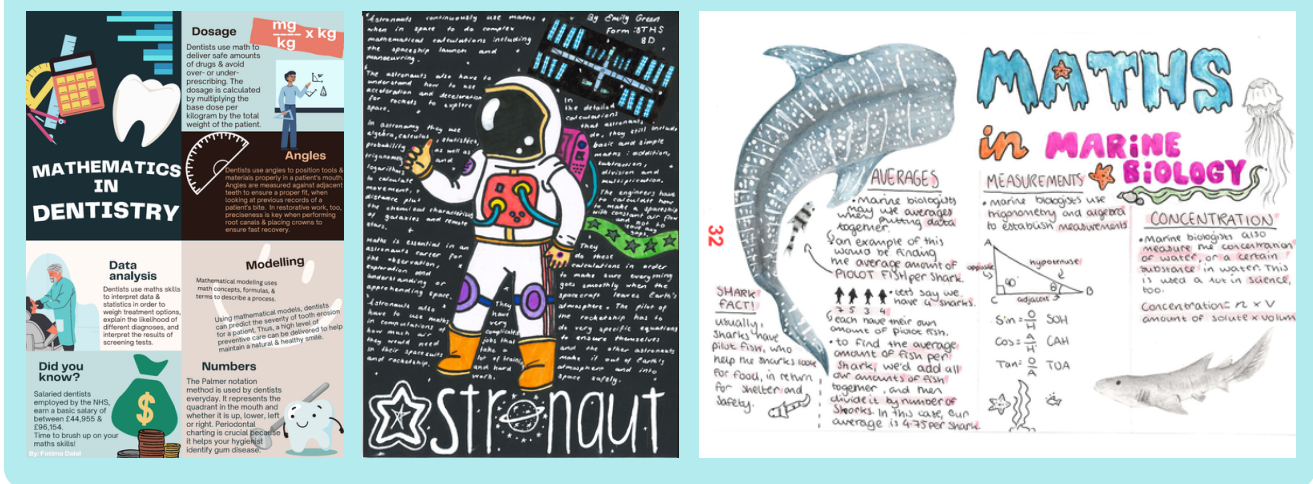 MATHEMATICS
IN
DENTISTRY
Dosage
Dentists use math to
deliver safe amounts
of drugs & avoid
over- or under-
prescribing. The
dosage is calculated
by multiplying the
base dose per
kilogram by the total
weight of the patient.
mg
kg
x kg
Angles
Dentists use angles to position tools &
materials properly in a patient's mouth.
Angles are measured against adjacent
teeth to ensure a proper fit, when
looking at previous records of a
patient's bite. In restorative work, too,
preciseness is key when performing
root canals & placing crowns to
ensure fast recovery.
Data
analysis
Dentists use maths skills
to interpret data &
statistics in order to
weigh treatment options,
explain the likelihood of
different diagnoses, and
interpret the results of
screening tests.
Modelling
Mathematical modeling uses
math concepts, formulas, &
terms to describe a process.
Using mathematical models, dentists
can predict the severity of tooth erosion
for a patient. Thus, a high level of
preventive care can be delivered to help
maintain a natural & healthy smile.
Did you
know?
Salaried dentists
employed by the NHS,
earn a basic salary of
between £44,955 &
£96,154.
Time to brush up on your
maths skills!
By: Fatima Dalal
$
Numbers
The Palmer notation
method is used by dentists
everyday. It represents the
quadrant in the mouth and
whether it is up, lower, left
or right. Periodontal
charting is crucial because
it helps your hygienist
identify gum disease.
Astronauts continuously use maths
when in space to do complex
mathematical calculations including
the spaceship launch and
maneuvering.
The astronauts also have to
understand how to use
acceleration and deceleration
for rockets to explore
space.
In astronomy they use
algebra, calculus, statistics,
probability as well as
trigonometry and
logarithms
to calculate
movement,
distance plus
the chemical characteristics
of galaxies and remote
stars.
Maths is essential in an
astronauts career for
the observation,
exploration and
understanding or
approaching space.
Astronauts also
have to use maths
in calculations of
how much air
they would need
in their spacesuits
and rocketship.
By Emily Green
Form: STHS
8D
In
the detailed
calculations
that astronauts
do, they still include
basic and simple
maths: addition,
subtraction,
division and
multiplication.
The engineers have
to calculate how
to make a spaceship
with constant air flow
and not to
leave any
gaps.
They
do these
calculations in order
to make sure everything
goes smoothly when the
spacecraft leaves Earth's
atmosphere. The pilot of
the rocketship has to
do very specific equations
to ensure themselves
and the other astronauts
make it out of Earth's
atmosphere and into
space safely.
They
have very
complicated
jobs that
take a
lot of brains
and hard
work.
Astronaut
32
MATHS
in MARINE
BIOLOGY
AVERAGES
• marine biologists
may use averages
when putting data
together.
an example of this
would be finding
the average amount of
PIOLOT FISH per SHARK.
• let's say we
have 4 sharks.
7 5 3 4
each have their own
amount of pilot fish.
• to find the average
amount of fish per
shark, we'd add all
our amounts of fish
together and then
divide it by number of
sharks. In this case, our
average is 4.75 per shark
SHARK
FACT!
usually,
sharks have
pilot fish, who
help the sharks look
for food, in return
for shelter and
safety.
MEASUREMENTS
• marine biologists use
trignometry and algebra
to establish measurements
A
opposite
hypotenuse
90°
θ
C
adjacent
B
Sin= O/H SOH
Cos= A/H CAH
Tan= O/A TOA
CONCENTRATION
• Marine biologists also
measure the concentration
of water, or a certain
substance in water. This
is used a lot in science,
too.
Concentration= n x V
amount of solute x volum